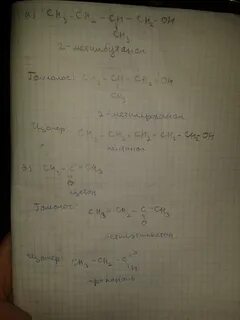 а) CH₃ – CH₂ – CH – CH₂ – OH
CH₃
2-метилбутанол
Гомолог: CH₃ – CH – CH₂ – OH
CH₃
2-метилпропанол
Изомер: CH₃ – CH₂ – CH₂ – CH₂ – CH₂OH
CH₃ – C – CH₃
O
ацетон
Гомолог: CH₃ – CH₂ – C – CH₃
O
Изомер: CH₃ – CH₂ – C
O
H
пропаналь